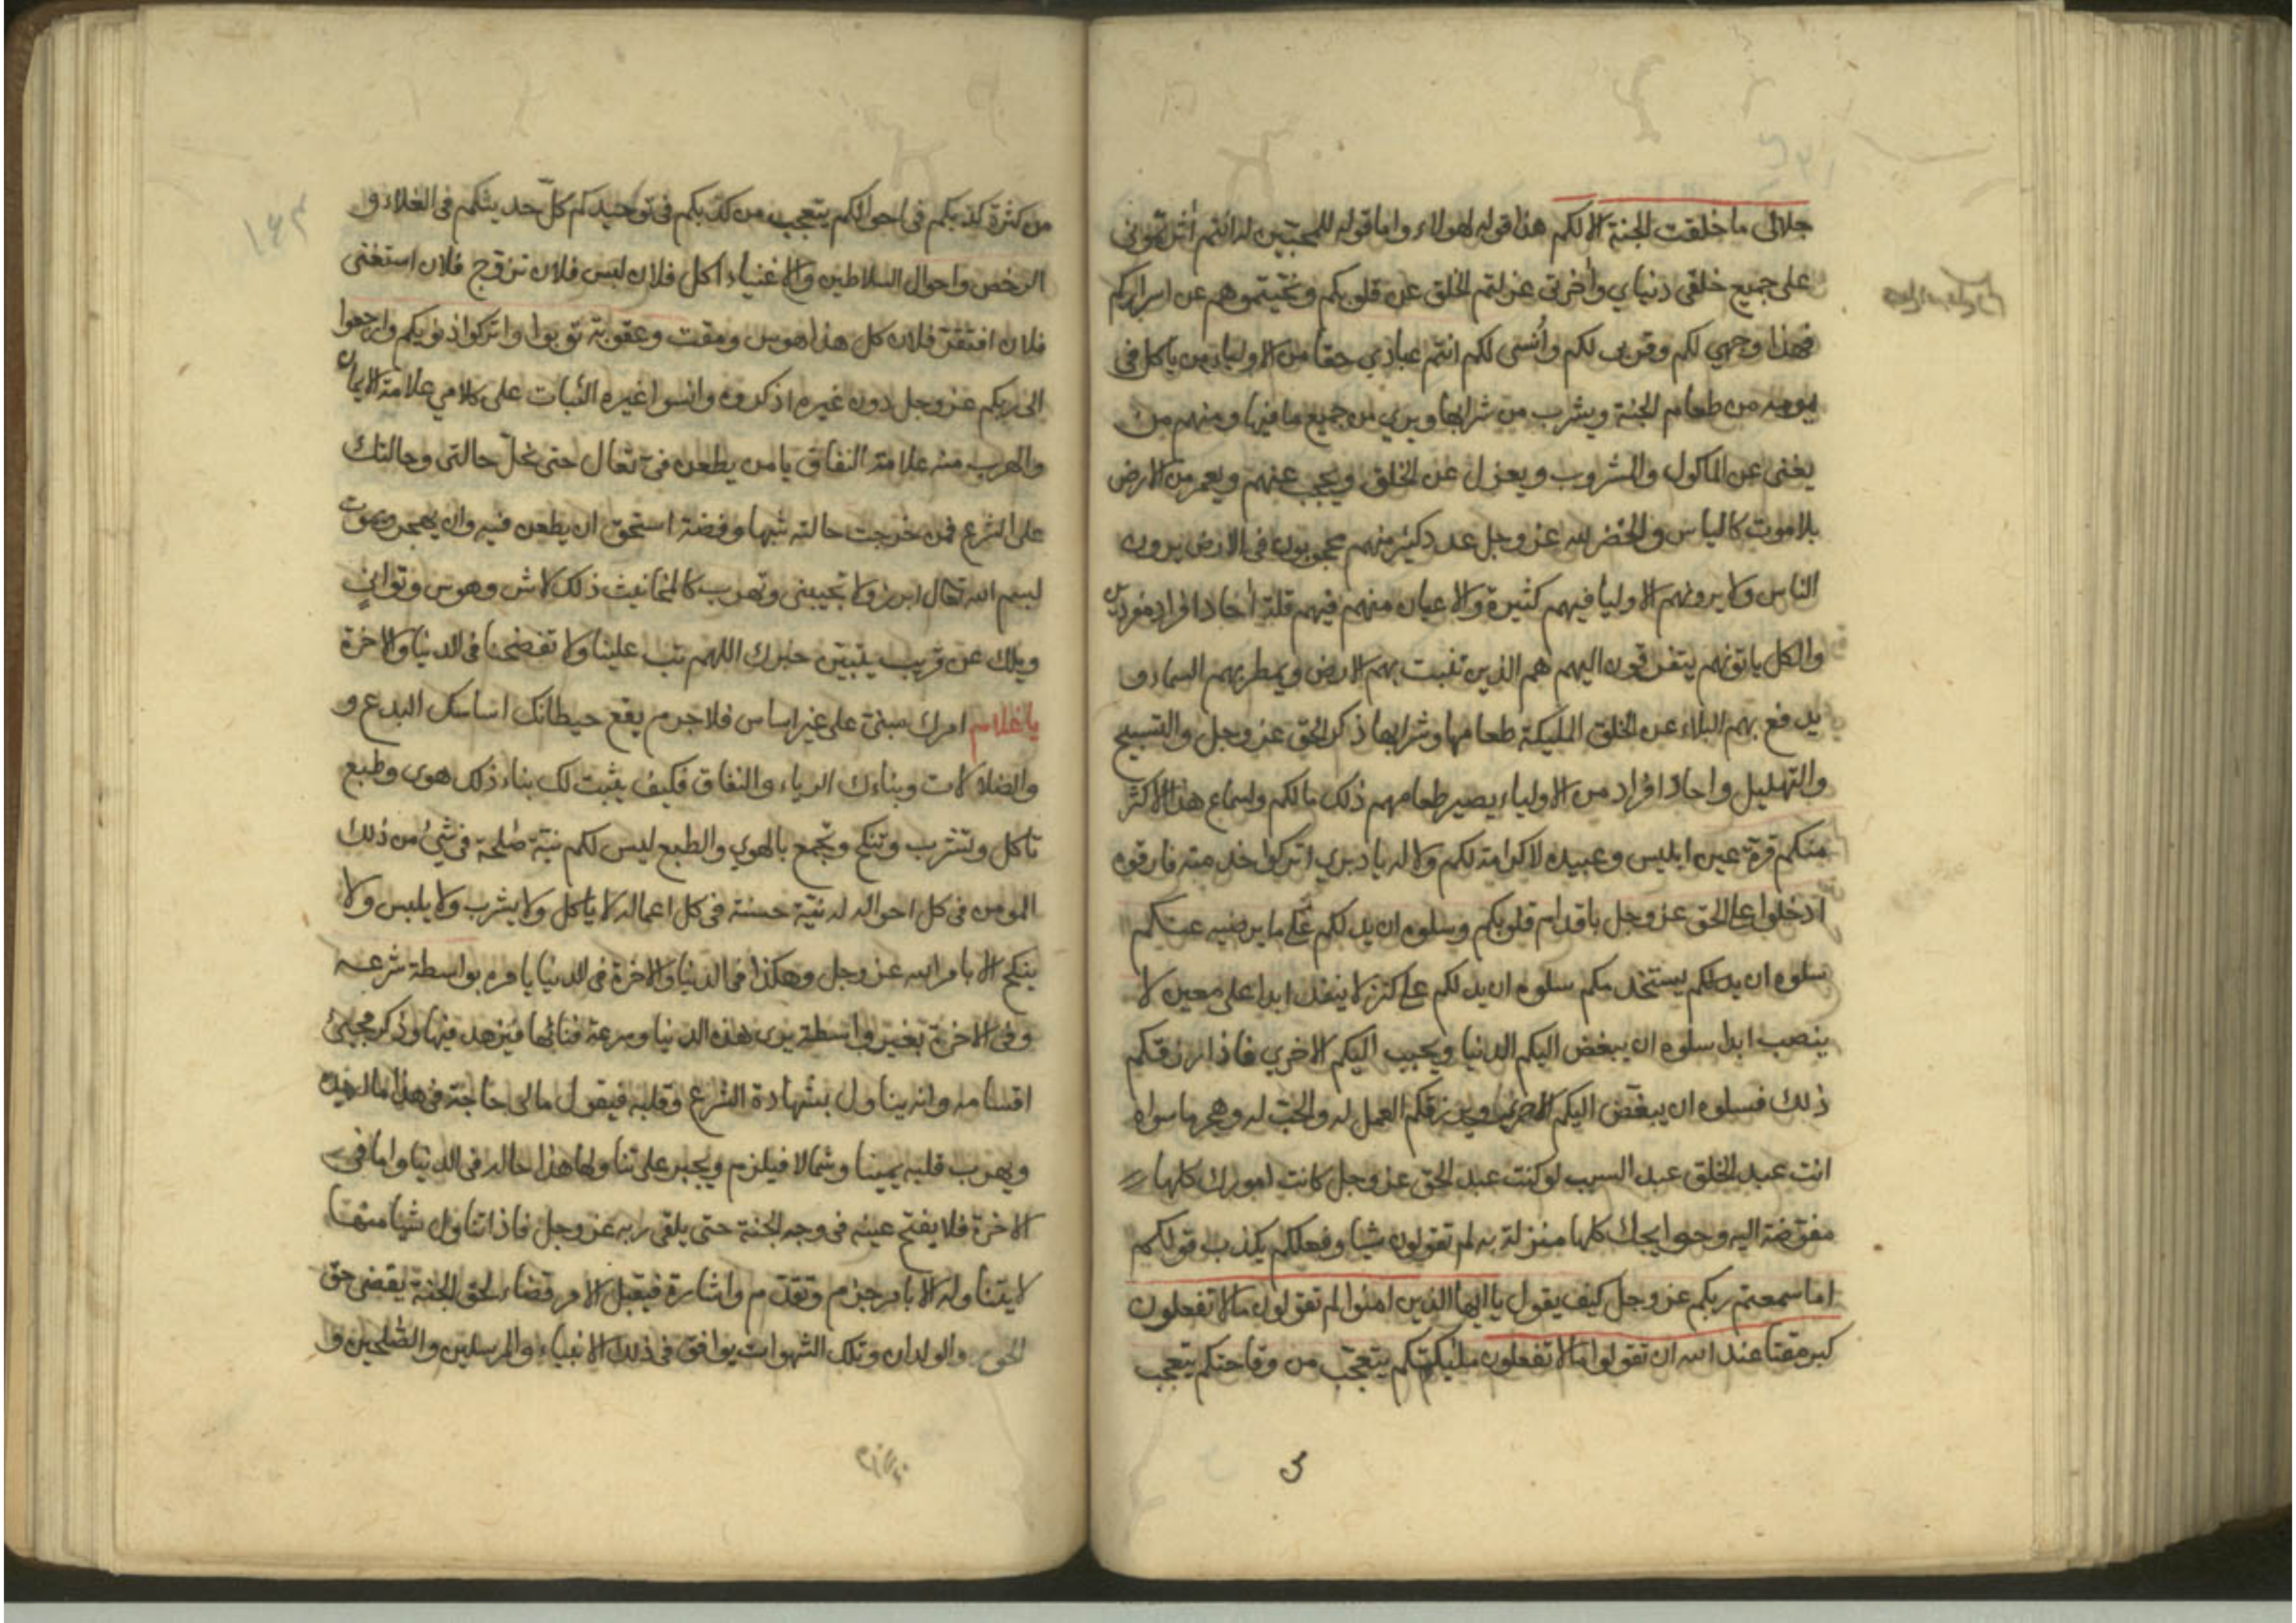 جلالى ما خلقت الجنة الا لكم هذا قوله لهولاء واما قوله للمحبين له انتم اثرتموني
على جميع خلقى دنياي وأخرتى عزلتم الخلق عن قلوبكم ونحيتموهم عن اسراركم
فهذا وجهي لكم وقربى لكم وأُنسى لكم انتم عبادي حقا من الاولياء من ياكل فى
يومه من طعام الجنة ويشرب من شرابها ويري من جميع ما فيها ومنهم من
يغنى عن الماكول والمشروب ويعزل عن الخلق ويحجب عنهم ويعمر من الارض
بلا موت كالياس والخضر لله عز وجل عدد كثير منهم محجوبون فى الارض يرون
الناس ولا يرونهم الاوليا فيهم كثيرة والاعيان منهم فيهم قلة أحاد افراد مفردين
والكل ياتونهم يتقربون اليهم هم الذين تنبت بهم الارض ويمطر بهم السماء و
يدفع بهم البلاء عن الخلق المليكة طعامها وشرابها ذكر الحق عز وجل والتسبيح
والتهليل واحاد افراد من الاولياء يصير طعامهم ذلك ما لكم واسماع هذا الاكثر
منكم قرة عين ابليس وعبيده لا كرامة لكم ولا له يا دبري اتركوا خدمته فارقوه
ادخلوا على الحق عز وجل باقدام قلوبكم وسلوه ان يدلكم على ما يرضيه عنكم
سلوه ان يدلكم يستخدمكم سلوه ان يدلكم على كنز لا ينفد ابدا على معين لا
ينصب ابدا سلوه ان يبغض اليكم الدنيا ويحبب اليكم الاخري فاذا رزقكم
ذلك فسلوه ان يبغّض اليكم الاخرى ويرزقكم العمل له والحب له وهجر ما سواه
انت عبد الخلق عبد السبب لو كنت عبد الحق عز وجل كانت امورك كلها
مفوّضة اليه وحوايجك كلها منزلة به لم تقولون شيا وفعلكم يكذب قولكم
اما سمعتم ربكم عز وجل كيف يقول يا ايها الذين امنوا لم تقولون ما لا تفعلون
كبر مقتا عند الله ان تقولوا ما لا تفعلون مليكتكم يتعجّب من وقاحتكم يتعجب
من كثرة كذبكم فى احوالكم يتعجب من كذبكم فى توحيدكم كلّ حديثكم فى الغلاء و
الرخص واحوال السلاطين والاغنياء اكل فلان لبس فلان تزوج فلان استغنى
فلان افتقر فلان كل هذا هوس ومقت وعقوبة توبوا واتركوا ذنوبكم وارجعوا
الى ربكم عز وجل دون غيره اذكروه وانسوا غيره الثبات على كلامي علامة الايمان
والهرب منه علامة النفاق يا من يطعن فيّ تعال حتى نحلّ حالتى وحالتك
على الشرع فمن خرجت حالته شبها وفضة استحق ان يطعن فيه وان يهجر ويموت
لبسم الله تعال ابرز ولا تجيبنى وتهرب كالمخانيث ذلك لاش وهوس وتوانٍ
ويلك عن قريب يتبيّن خبرك اللهم تب علينا ولا تفضحنا فى الدنيا والاخرة
يا غلام امرك مبنى على غير اساس فلا جرم يقع حيطانك اساسك البدع و
والضلالات وبناءك الرياء والنفاق فكيف يثبت لك بناء ذلك هوى وطبع
تاكل وتشرب وتنكح وتجمع بالهوي والطبع ليس لكم نية صلحة فى شيء من ذلك
المومن فى كل احواله له نيّة حسنة فى كل اعماله لا ياكل ولا يشرب ولا يلبس ولا
ينكح الا بامر الله عز وجل وهكذا فى الدنيا والاخرة فى الدنيا يامره بواسطة شرعه
وفى الاخرة بغير واسطة يرى هذه الدنيا وسرعة فنائها فيزهد فيها وذكر مجيئ
اقسامه وانه يناول بشهادة الشرع وقلبه فيقول ما لى حاجة فى هذا
ويهرب قلبه يمينا وشمالا فيلزم ويجبر على تناولها هذا حاله فى الدنيا واما فى
الاخرة فلا يفتح عينه فى وجه الجنة حتى يلقى ربه عز وجل فاذا تناول شيا منها
لا يتناوله الا بامر جزم وتقدم واشارة فيقبل الامر قضاء لحق الجنة يقضى حق
الحور والولدان وتلك الشهوات يوافق فى ذلك الانبياء والمرسلين والصّلحين و